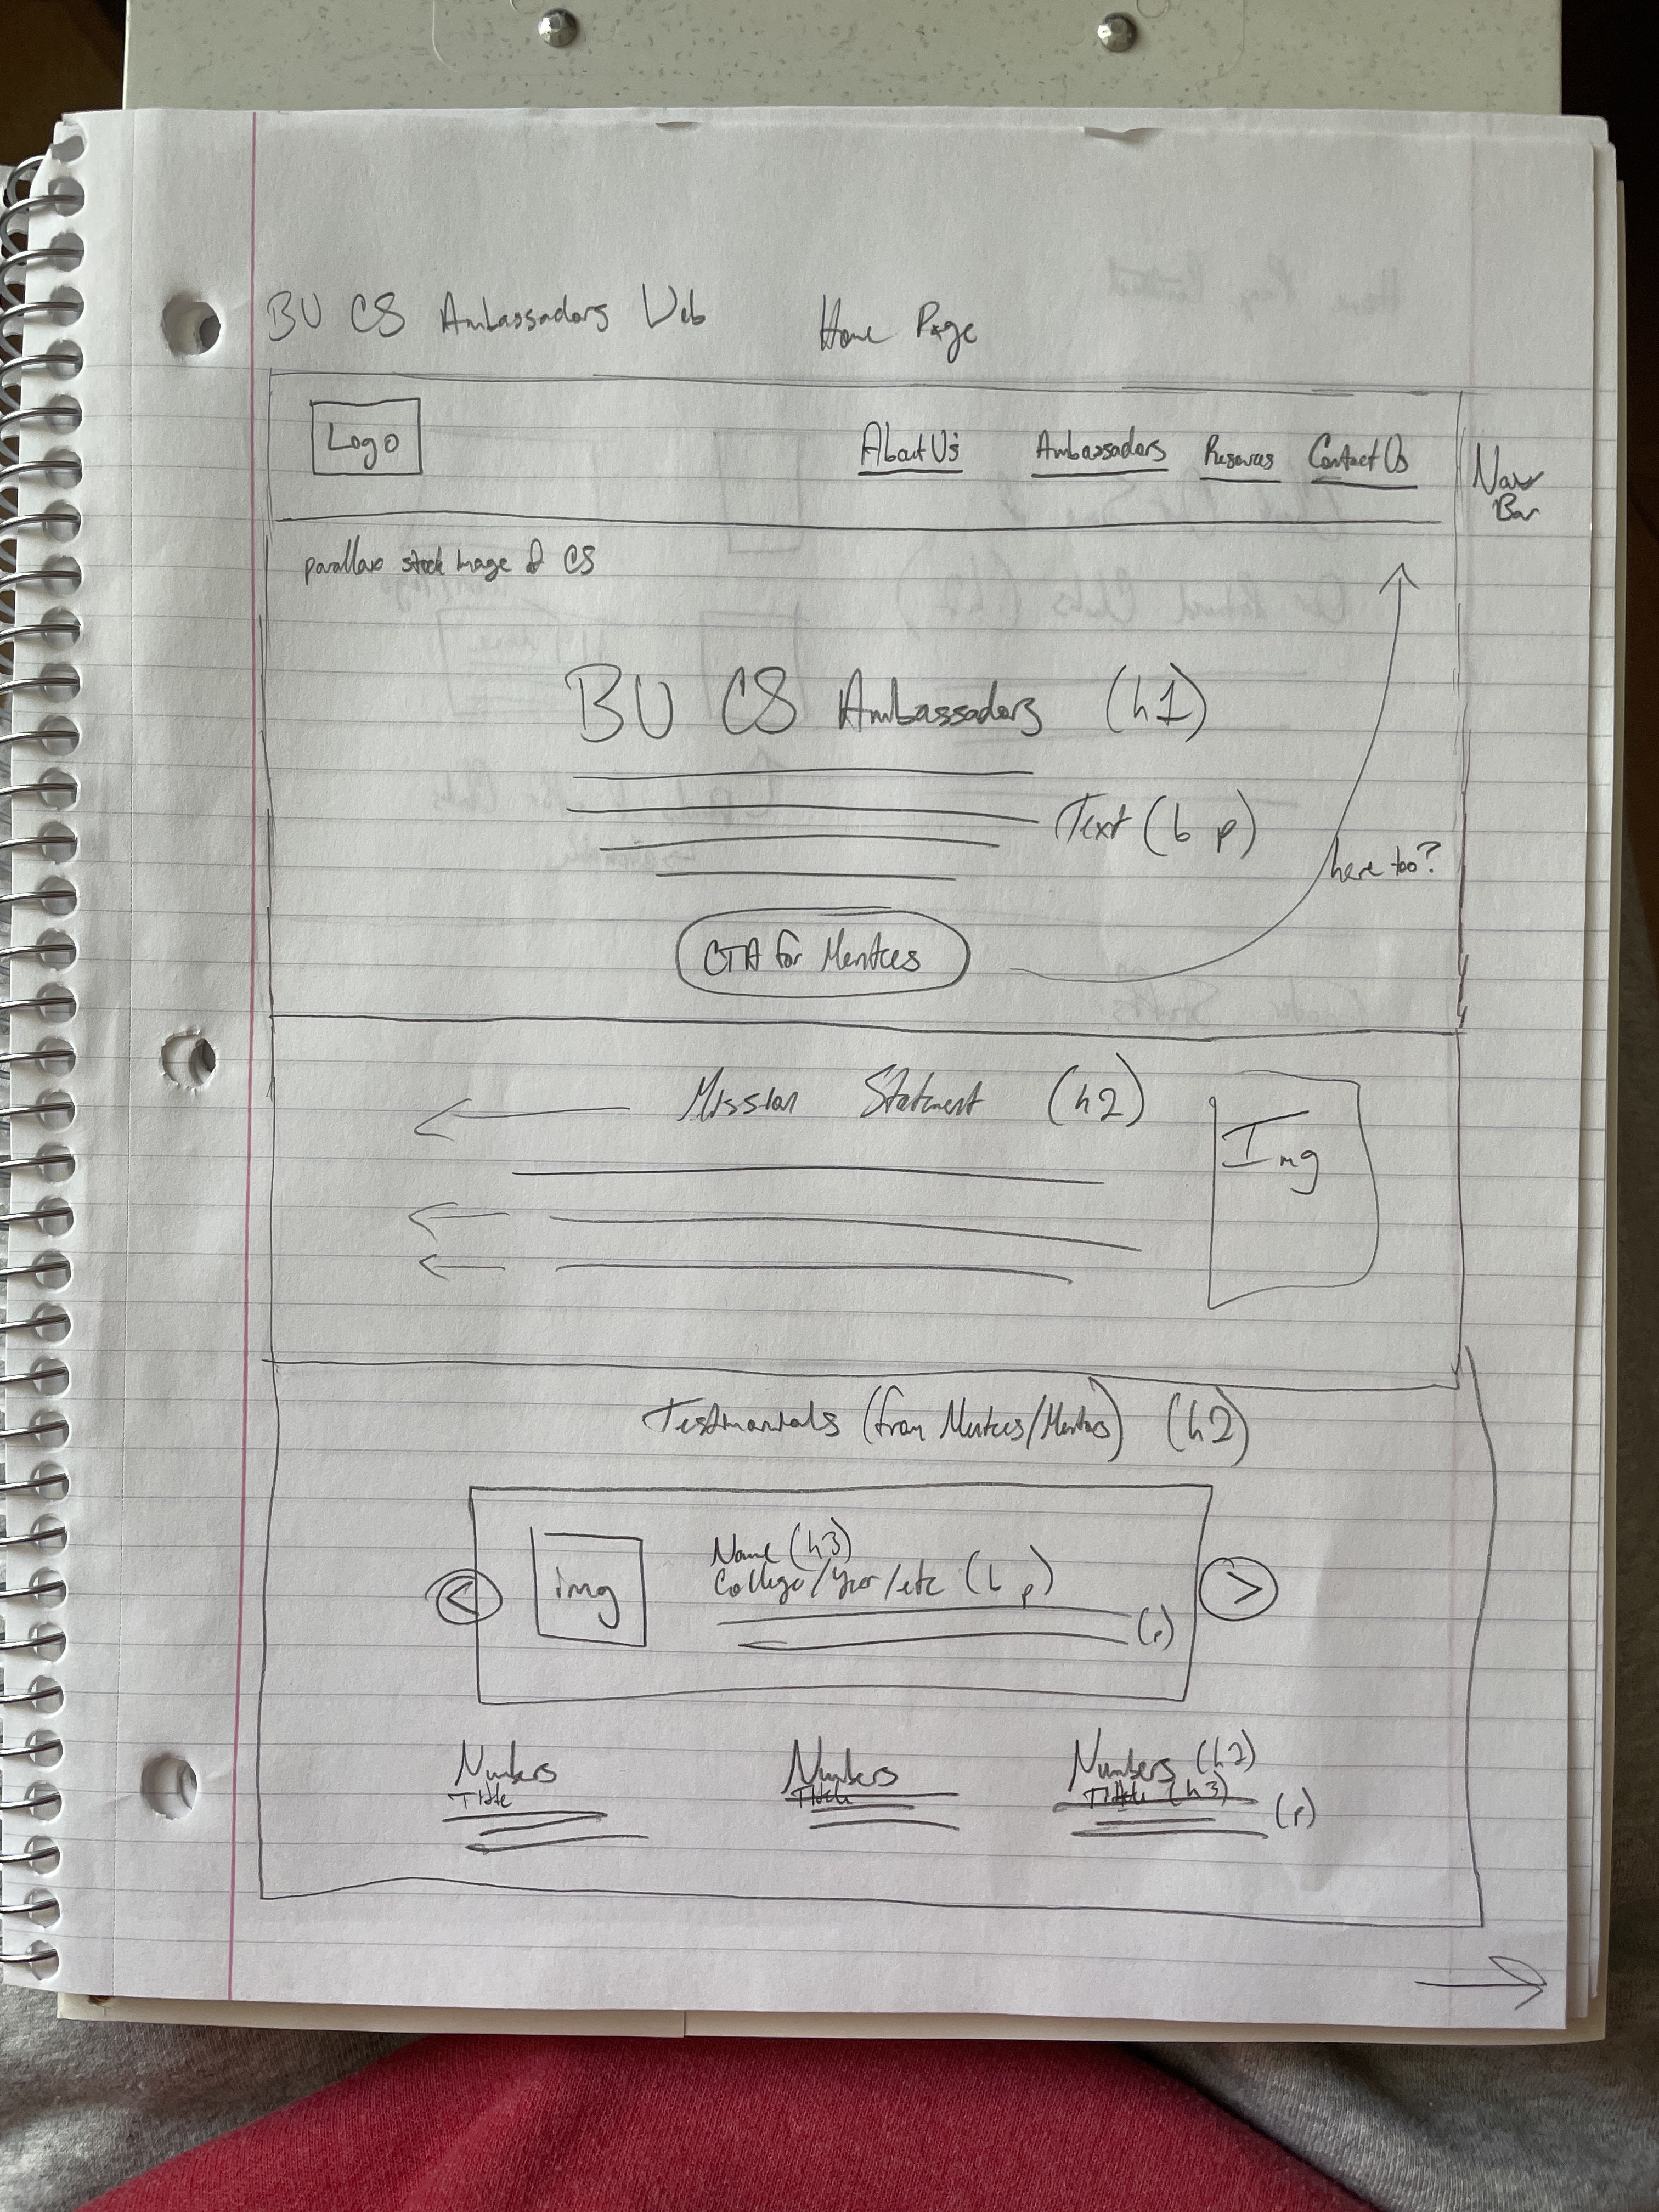 BU CS Ambassadors Web Home Page
Logo
About Us Ambassadors Resources Contact Us
Nav
Bar
parallax stock image of CS
BU CS Ambassadors (h1)
Text (b p)
here too?
CTA for Mentees
Mission Statement (h2)
Img
Testimonials (from Mentees/Mentors) (h2)
img
Name (h3)
College/year/etc (b p)
(p)
< >
Numbers Numbers Numbers (h2)
Title Title Title (h3)
(p)